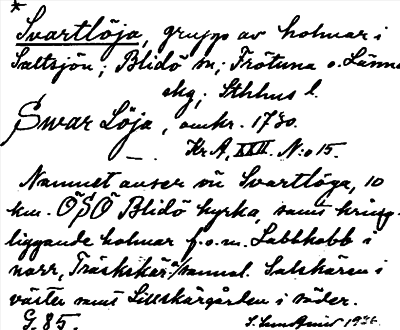 *
Svartlöja, grupp av holmar i
Saltsjön; Blidö sn; Frötuna o. Länna
skg; Sthlms l.
Swar Löja, omkr. 1730.
Kr A, XXII. N:o 15.
Namnet avser nu Svartlöga, 10
km. ÖSÖ Blidö kyrka, samt kring-
liggande holmar f.o.m. Labbkobb i
norr, Träskskär i Salskären i
väster samt Lillskärgården i söder.
G. 85.